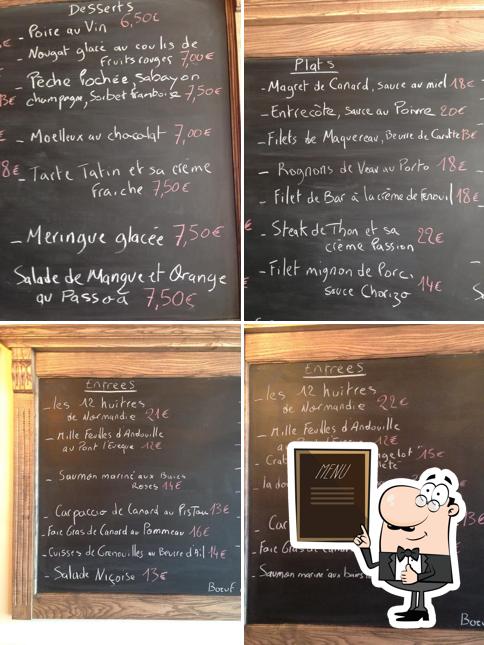 Desserts
- Poire au Vin 6,50€
- Nougat glacé au coulis de
fruits rouges 7,00€
- Pêche Pochée, Sabayon
champagne, Sorbet framboise 7,50€
- Moelleux au chocolat 7,00€
- Tarte Tatin et sa crème
fraiche 7,50€
- Meringue glacée 7,50€
Salade de Mangue et Orange
au Passoã 7,50€
Plats
- Magret de Canard, sauce au miel 18€
- Entrecôte, Sauce au Poivre 20€
- Filets de Maquereau, Beurre de Carotte 13€
- Rognons de Veau au Porto 18€
- Filet de Bar à la crème de Fenouil 18€
- Steak de Thon et sa
crème Passion 22€
- Filet mignon de Porc,
sauce Chorizo 14€
Entrées
- les 12 huitres
de Normandie 21€
- Mille Feuilles d'Andouille
au Pont l'Eveque 12€
- Saumon mariné aux Baies
Roses 14€
- Carpaccio de Canard au Pistau 13€
- Foie Gras de Canard au Pommeau 16€
- Cuisses de Grenouilles au Beurre d'Ail 14€
- Salade Niçoise 13€
Bœuf
Entrées
- les 12 huitres
de Normandie 22€
- Mille Feuilles d'Andouille
au Pont l'Eveque 12€
- Crab 15€
- la do
- Car 13€
- Foie Gras de Cana
- Saumon mariné aux baies
Bœuf
MENU